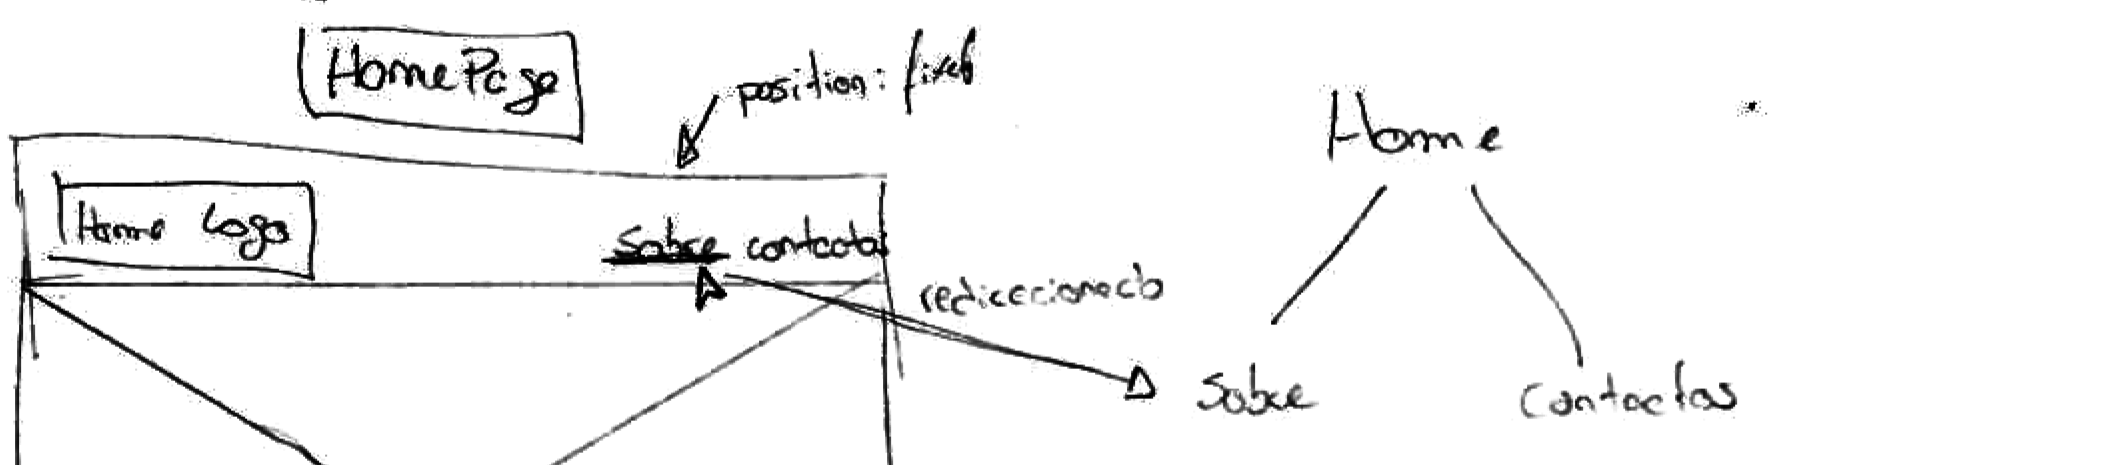 HomePage
position: fixed
Home
Home Logo
Sobre contactos
redirecionado
Sobre
Contactos